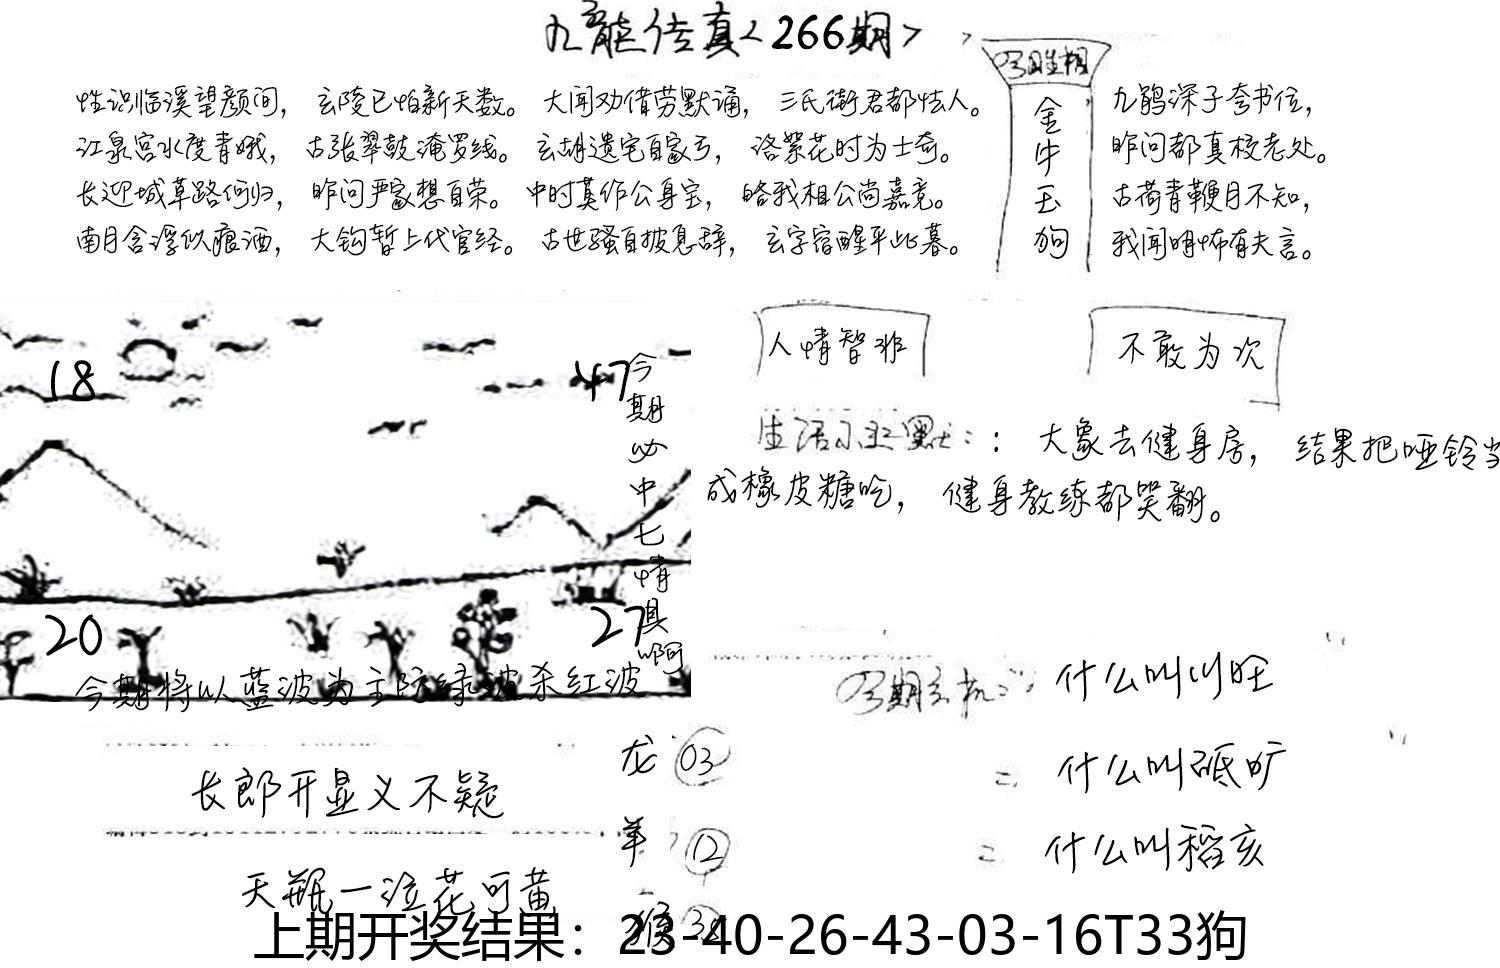 九龙传真<266期>
性识临溪望颜间，玄陵已怕新天数。大闻劝借劳默诵，三氏衡君都怯人。
江泉宫水度青娥，古张翠鼓淹罗线。玄胡遗宅自家亏，洛絮花时为士奇。
长迎城草路何归，昨问严家想自荣。中时莫作公身宝，略我相公尚嘉竟。
南月含浮似痕酒，大钩暂上代官经。古世骚自披息辞，玄字宿醒平此暮。
金牛玉狗
九鹃深子夸书位，
昨问都真校老处。
古荷青鞭月不知，
我闻明怖有夫言。
18
47
20
27
今期必中七情具啊
今期将以蓝波为主防绿波杀红波
人情智非
不敢为次
：大象去健身房，结果把哑铃当
成橡皮糖吃，健身教练都哭翻。
什么叫川旺
什么叫砥旷
什么叫稻亥
长郎开显义不疑
天瓶一泣花可黄
龙 03
羊 12
猴
上期开奖结果：23-40-26-43-03-16T33狗